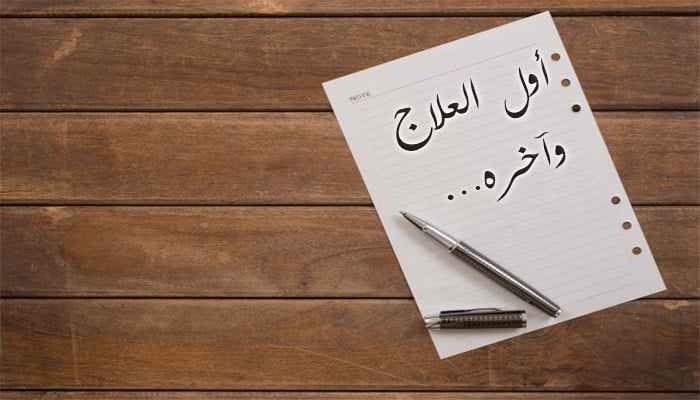 NOTE
أول العلاج
وآخره...